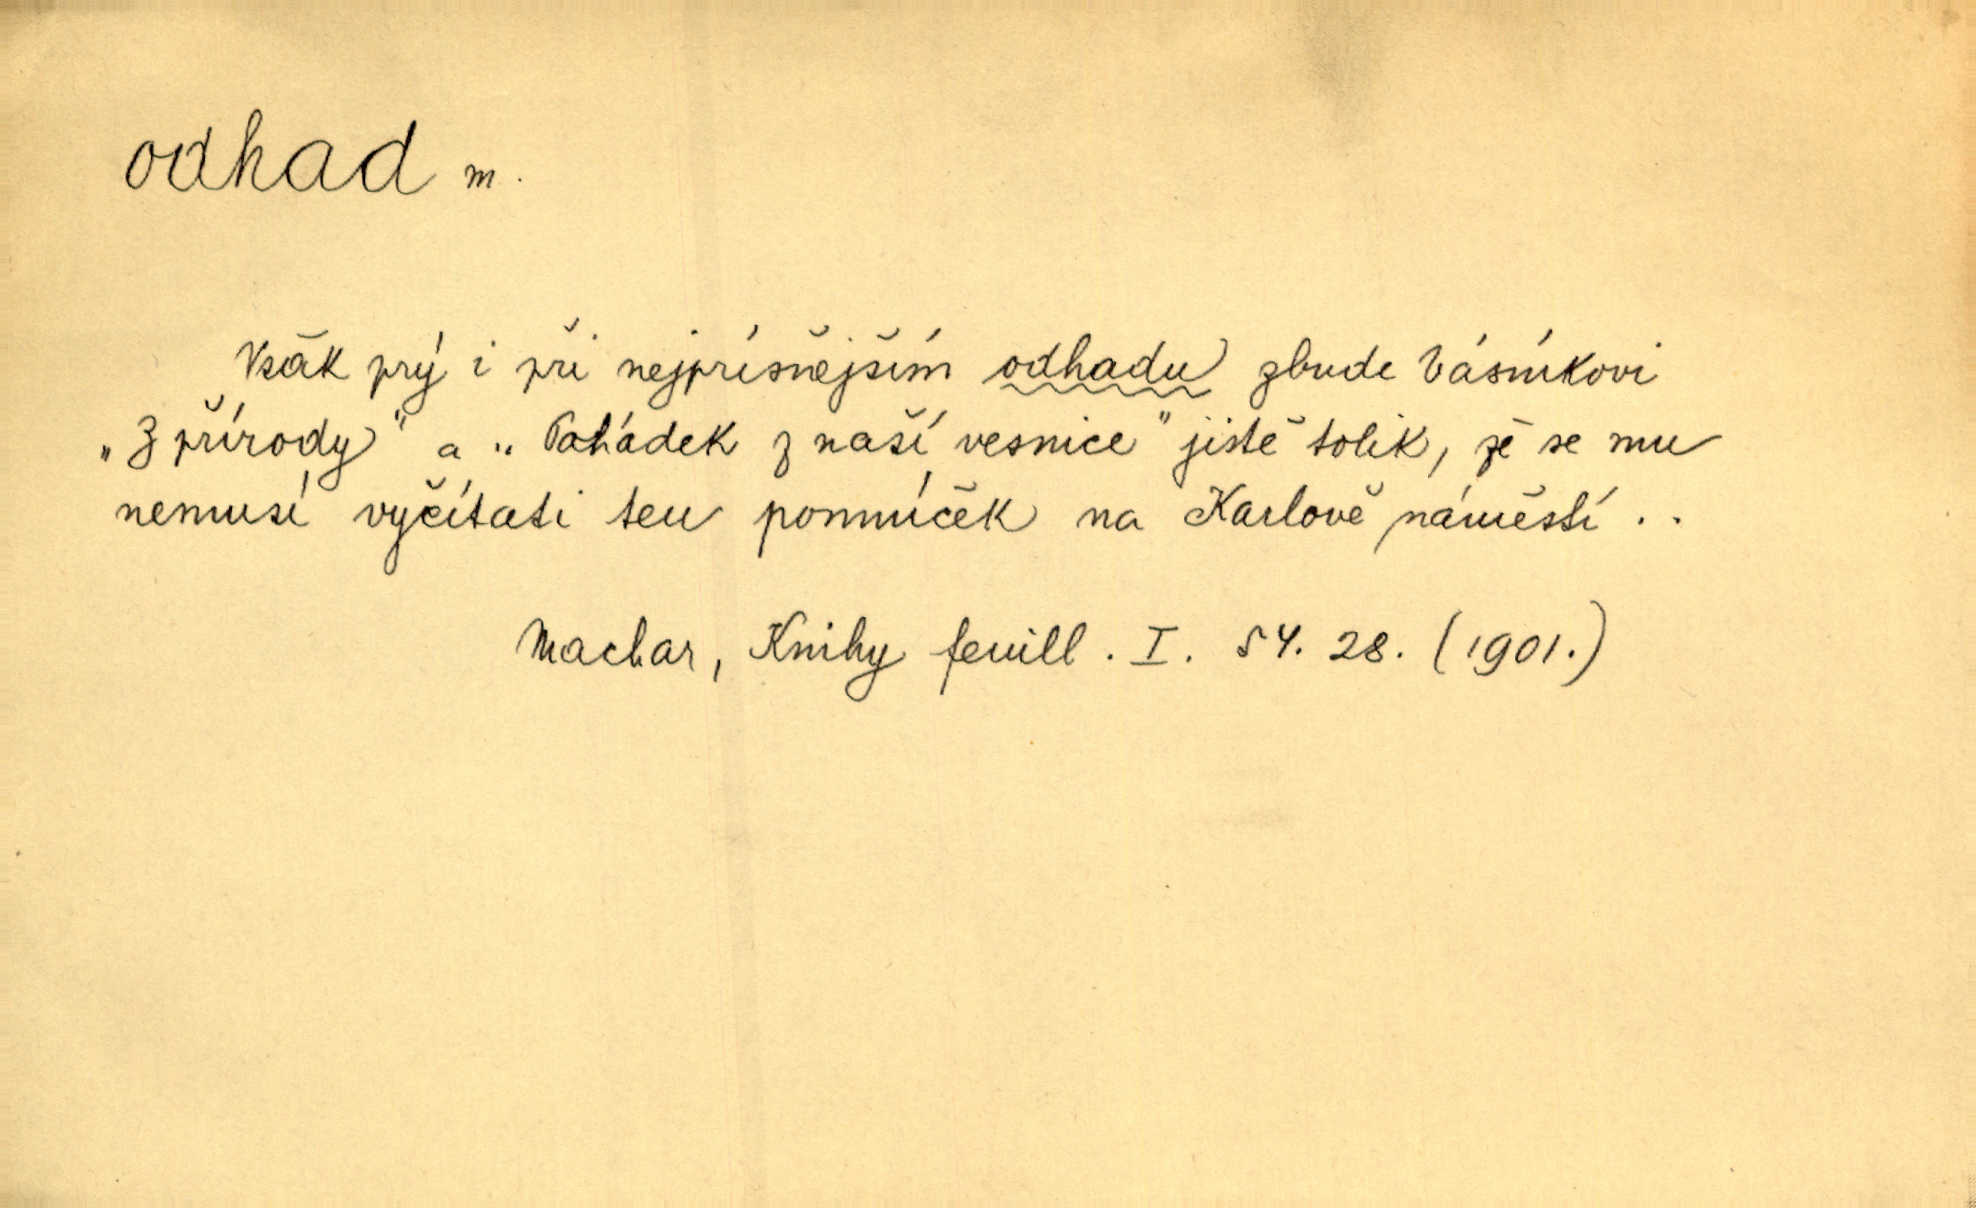 odhad m.
Však prý i při nejprísnějším odhadu zbude básníkovi
„Z přírody" a „Pohádek z naší vesnice" jistě tolik, že se mu
nemusí vyčítati ten pomníček na Karlově náměstí ..
Machar, Knihy feuill. I. 54. 28. (1901.)